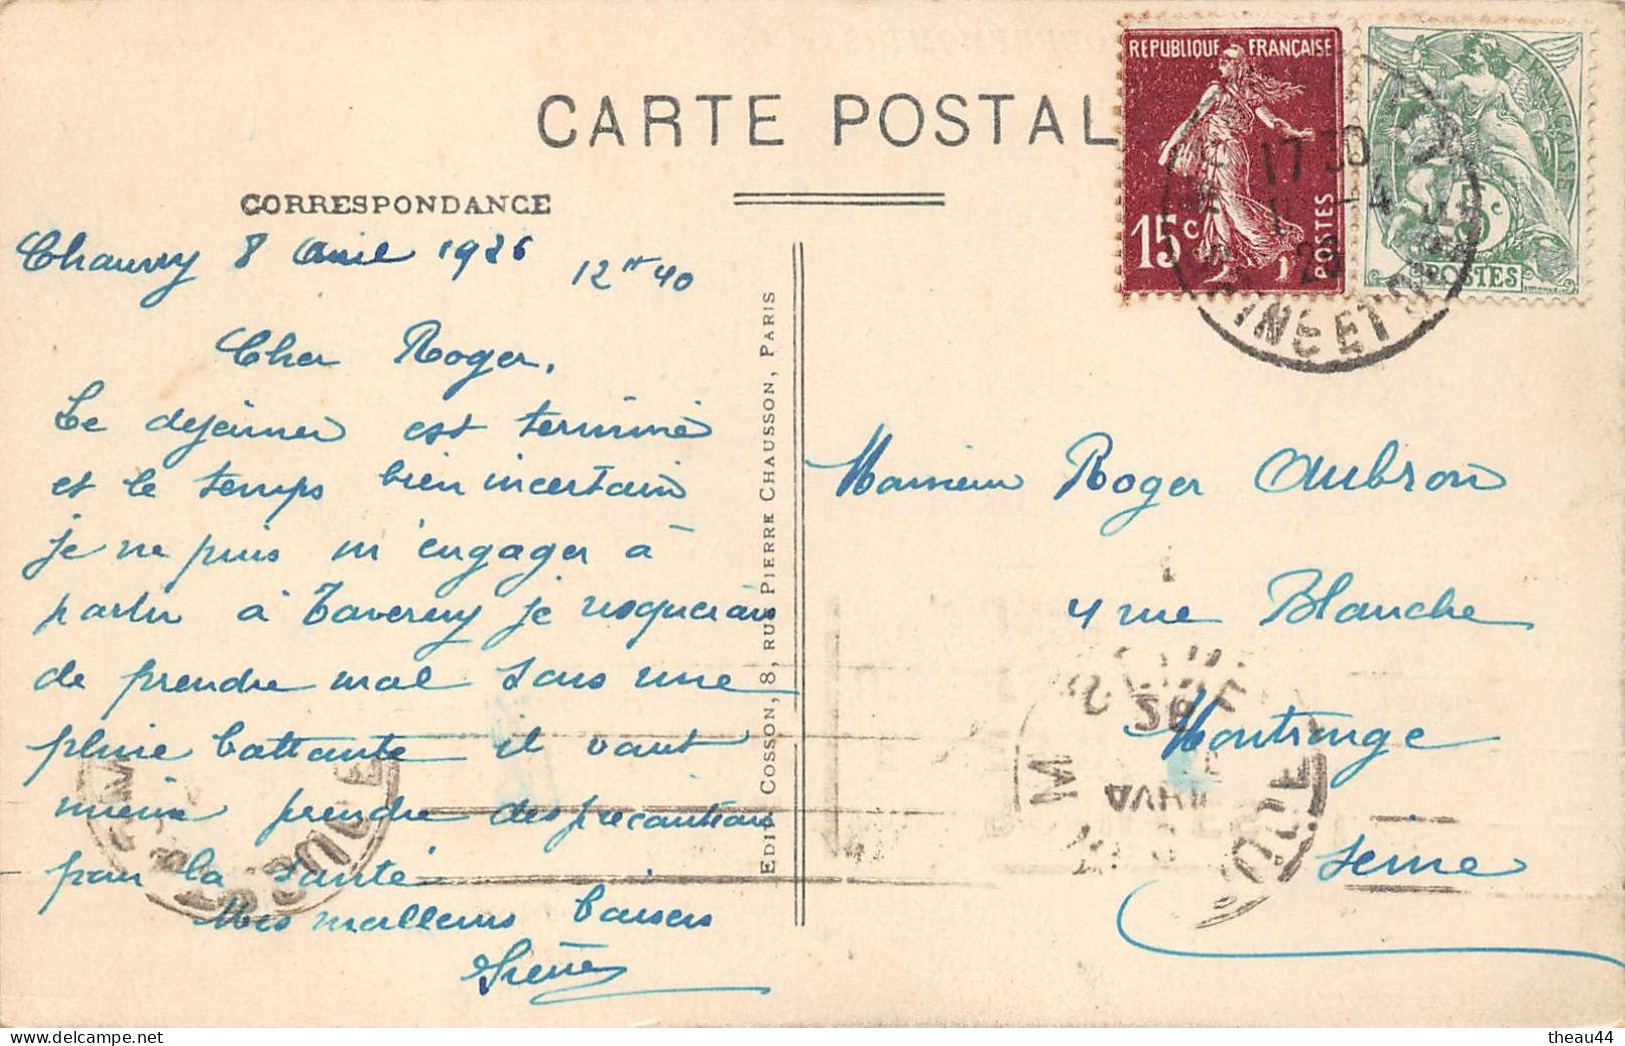 CARTE POSTALE
RÉPUBLIQUE FRANÇAISE
15c
POSTES
FRANÇAISE
5c
POSTES
17 30
-4
26
SEINE ET O
CORRESPONDANCE
Chauvry 8 Avril 1926 12H40
Cher Roger,
Le dejeûner est terminé
et le temps bien incertain
je ne puis m'engager à
partir à Taverny je risquerais
de prendre mal sous une
pluie battante il vaut
mieux prendre des precautions
pour la santé
Mes meilleurs baisers
EDIT. COSSON, 8, RUE PIERRE CHAUSSON, PARIS
Monsieur Roger Aubron
4 rue Blanche
Montrouge
Seine
theau44